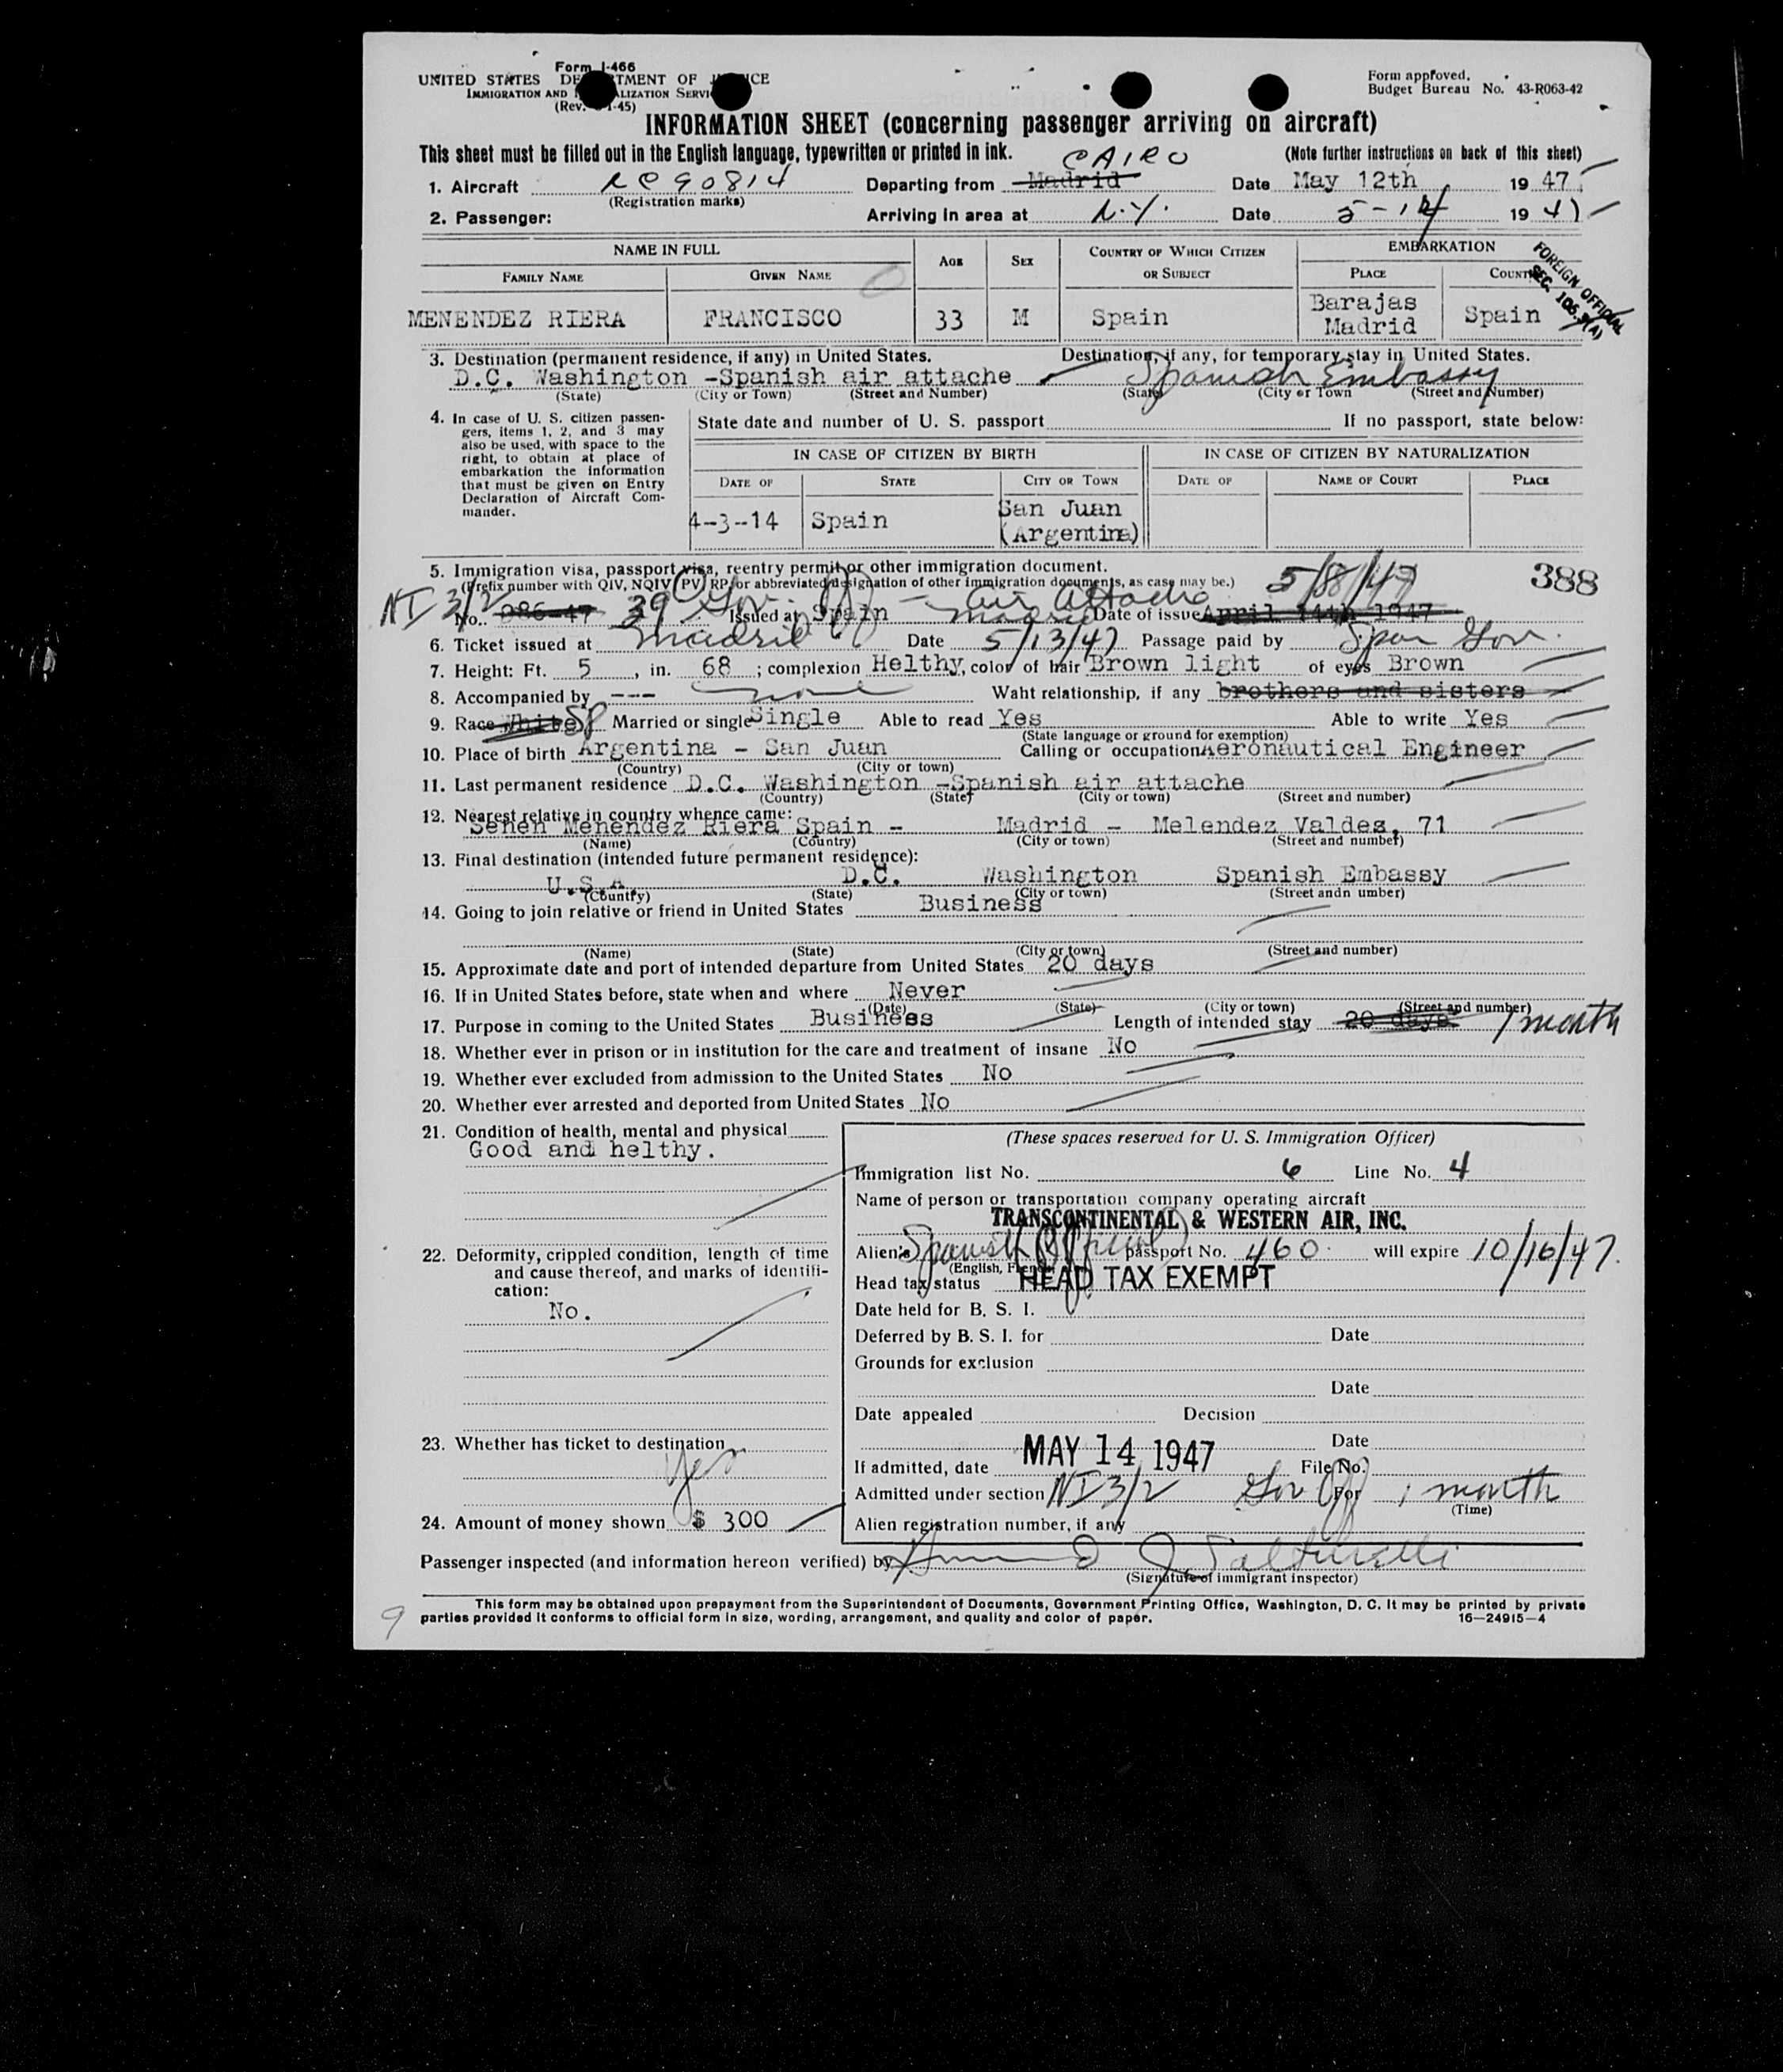 Form I-466
UNITED STATES DEPARTMENT OF JUSTICE
IMMIGRATION AND NATURALIZATION SERVICE
(Rev. 1-45)
Form approved.
Budget Bureau No. 43-R063-42
INFORMATION SHEET (concerning passenger arriving on aircraft)
This sheet must be filled out in the English language, typewritten or printed in ink. (Note further instructions on back of this sheet)
CAIRO
1. Aircraft Departing from Madrid Date May 12th 1947
(Registration marks)
2. Passenger: Arriving in area at N.Y. Date 5-14 1947
NAME IN FULL AGE SEX COUNTRY OF WHICH CITIZEN OR SUBJECT EMBARKATION
FAMILY NAME GIVEN NAME PLACE COUNTRY
FOREIGN OFFICIAL
MENENDEZ RIERA FRANCISCO 33 M Spain Barajas Madrid Spain
3. Destination (permanent residence, if any) in United States. Destination, if any, for temporary stay in United States.
D.C. Washington -Spanish air attache Spanish Embassy
(State) (City or Town) (Street and Number) (State) (City or Town (Street and Number)
4. In case of U. S. citizen passen-
gers, items 1, 2, and 3 may
also be used, with space to the
right, to obtain at place of
embarkation the information
that must be given on Entry
Declaration of Aircraft Com-
mander.
State date and number of U. S. passport If no passport, state below:
IN CASE OF CITIZEN BY BIRTH IN CASE OF CITIZEN BY NATURALIZATION
DATE OF STATE CITY OR TOWN DATE OF NAME OF COURT PLACE
4-3-14 Spain San Juan (Argentina)
5. Immigration visa, passport visa, reentry permit or other immigration document. 5/8/47 388
(Prefix number with QIV, NQIV (PV) RP for abbreviated designation of other immigration documents, as case may be.)
NI 3/2 No. 086-47 39 Gov. Off - Air Attache
Issued at Spain Madrid Date of issue April 14th 1947
6. Ticket issued at Madrid Date 5/13/47 Passage paid by Span Gov.
7. Height: Ft. 5, in. 68; complexion Helthy, color of hair Brown light of eyes Brown
8. Accompanied by --- none Waht relationship, if any brothers and sisters
9. Race White Sp Married or single Single Able to read Yes Able to write Yes
(State language or ground for exemption)
10. Place of birth Argentina - San Juan Calling or occupation Aeronautical Engineer
(Country) (City or town)
11. Last permanent residence D.C. Washington -Spanish air attache
(Country) (State) (City or town) (Street and number)
12. Nearest relative in country whence came:
Senen Menendez Riera Spain - Madrid - Melendez Valdes, 71
(Name) (Country) (City or town) (Street and number)
13. Final destination (intended future permanent residence):
U.S.A. D.C. Washington Spanish Embassy
(Country) (State) (City or town) (Street andn umber)
14. Going to join relative or friend in United States Business
(Name) (State) (City or town) (Street and number)
15. Approximate date and port of intended departure from United States 20 days
16. If in United States before, state when and where Never
(Date) (State) (City or town) (Street and number)
17. Purpose in coming to the United States Business Length of intended stay 20 days 1 month
18. Whether ever in prison or in institution for the care and treatment of insane No
19. Whether ever excluded from admission to the United States No
20. Whether ever arrested and deported from United States No
21. Condition of health, mental and physical
Good and helthy.
22. Deformity, crippled condition, length of time
and cause thereof, and marks of identifi-
cation:
No.
23. Whether has ticket to destination
Yes
24. Amount of money shown $ 300
(These spaces reserved for U. S. Immigration Officer)
Immigration list No. 6 Line No. 4
Name of person or transportation company operating aircraft
TRANSCONTINENTAL & WESTERN AIR, INC.
Alien's Spanish Official passport No. 460 will expire 10/16/47
(English, French
Head tax status HEAD TAX EXEMPT
Date held for B. S. I.
Deferred by B. S. I. for Date
Grounds for exclusion
Date
Date appealed Decision
Date
If admitted, date MAY 14 1947 File No.
Admitted under section NI 3/2 Gov Off For 1 month
(Time)
Alien registration number, if any
Passenger inspected (and information hereon verified) by
(Signature of immigrant inspector)
This form may be obtained upon prepayment from the Superintendent of Documents, Government Printing Office, Washington, D. C. It may be printed by private
parties provided it conforms to official form in size, wording, arrangement, and quality and color of paper. 16—24915-4
9